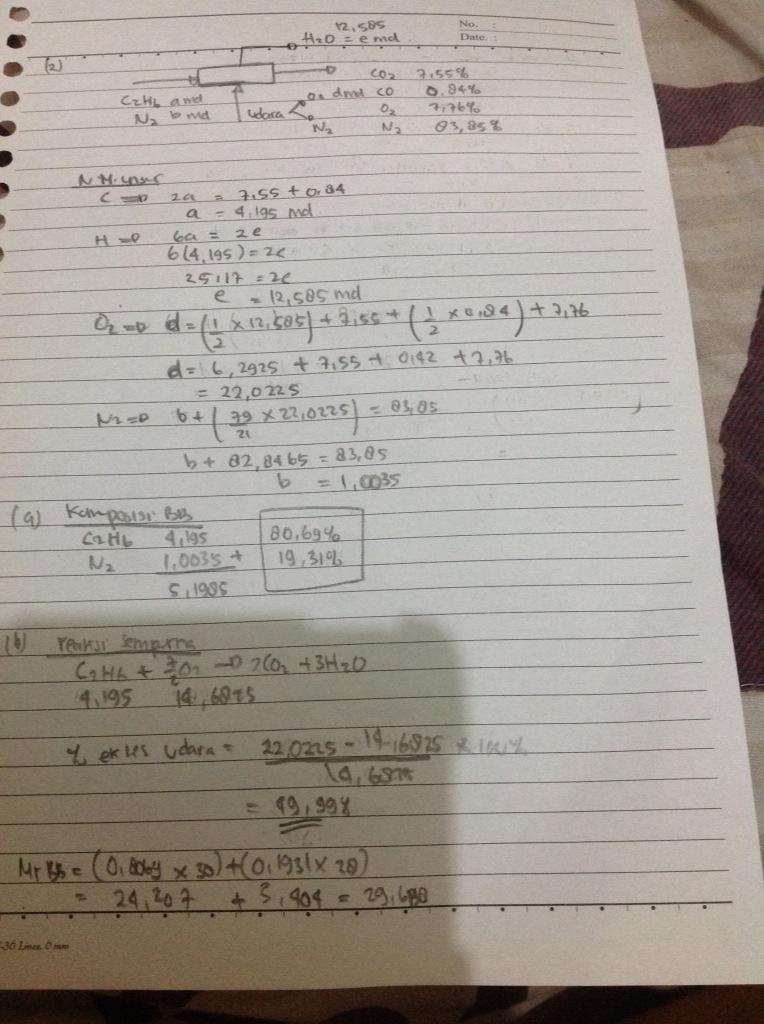 No. :
Date. :
12,585
H2O = e md
(2)
C2H6 a md
N2 b md
udara
O2 d md
N2
CO2 7,55%
CO 0,84%
O2 7,76%
N2 83,85%
N M. unsur
C => 2a = 7,55 + 0,84
a = 4,195 md
H => 6a = 2e
6(4,195) = 2e
25,17 = 2e
e = 12,585 md
O2 => d = (1/2 x 12,585) + 7,55 + (1/2 x 0,84) + 7,76
d = 6,2925 + 7,55 + 0,42 + 7,76
= 22,0225
N2 => b + (79/21 x 22,0225) = 83,85
b + 82,8465 = 83,85
b = 1,0035
(a) Komposisi BB
C2H6 4,195 80,69%
N2 1,0035 + 19,31%
5,1985
(b) reaksi sempurna
C2H6 + 7/2 O2 -> 2CO2 + 3H2O
4,195 14,6825
% ekses udara = 22,0225 - 14,6825 x 100%
14,6825
= 49,99%
Mr BB = (0,8069 x 30) + (0,1931 x 28)
= 24,207 + 5,404 = 29,
-36 Lines, 6 mm